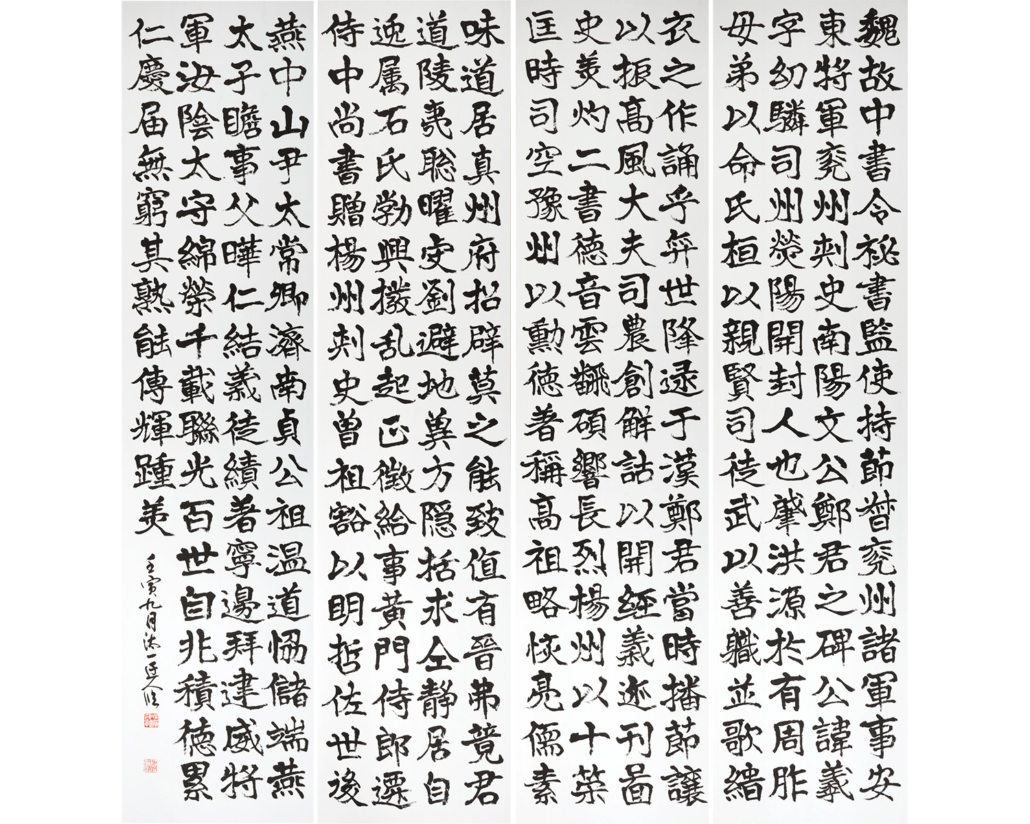 魏故中書令秘書監使持節督兗州諸軍事安
東將軍兗州刺史南陽文公鄭君之碑公諱羲
字幼驎司州滎陽開封人也肇洪源於有周胙
母弟以命氏桓以親賢司徒武以善職並歌緇
衣之作誦乎弈世降逯于漢鄭君當時播節讓
以振高風大夫司農創解詁以開經義迹刊圖
史美灼二書德音雲翻碩響長烈楊州以十策
匡時司空豫州以勳德著稱高祖略恢亮儒素
味道居真州府招辟莫之能致值有晉弗竟君
道陵夷聰曜虔劉避地冀方隱括求仝靜居自
逸属石氏勃興撥乱起正徵給事黃門侍郎遷
侍中尚書贈楊州刺史曾祖豁以明哲佐世後
燕中山尹太常卿濟南貞公祖温道恊儲端燕
太子瞻事父曄仁結義徒績著寧邊拜建威將
軍汝陰太守綿榮千載聯光百世自非積德累
仁慶届無窮其熟能傳輝踵美
壬寅九月沐一